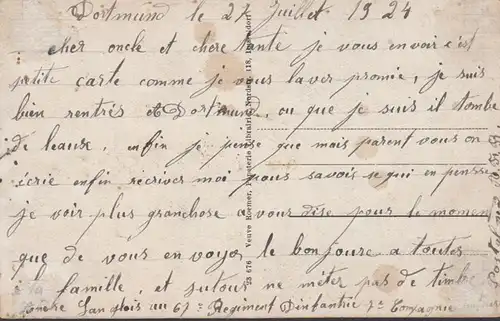 Dortmund le 24 Juillet 1924
cher oncle et chere tante je vous envoir c'est
petite carte comme je vous laver promie, je suis
bien rentrés et Dortmund, ou que je suis il tombe
de leause, enfin je pense que mais parent vous on
écrie enfin récriver moi pous savois se qui en pensse
je voir plus granchose a vous dise pour le momen
que de vous en voyer le bonjoure a toutes
la famille, et surtous ne méter pas de timbre
Langlois au 67e Regiment Dinfantrie 7e Compagnie
23 676 Veuve Roemer, Papeterie Librairie, Nordstr. 118, Dusseldorf